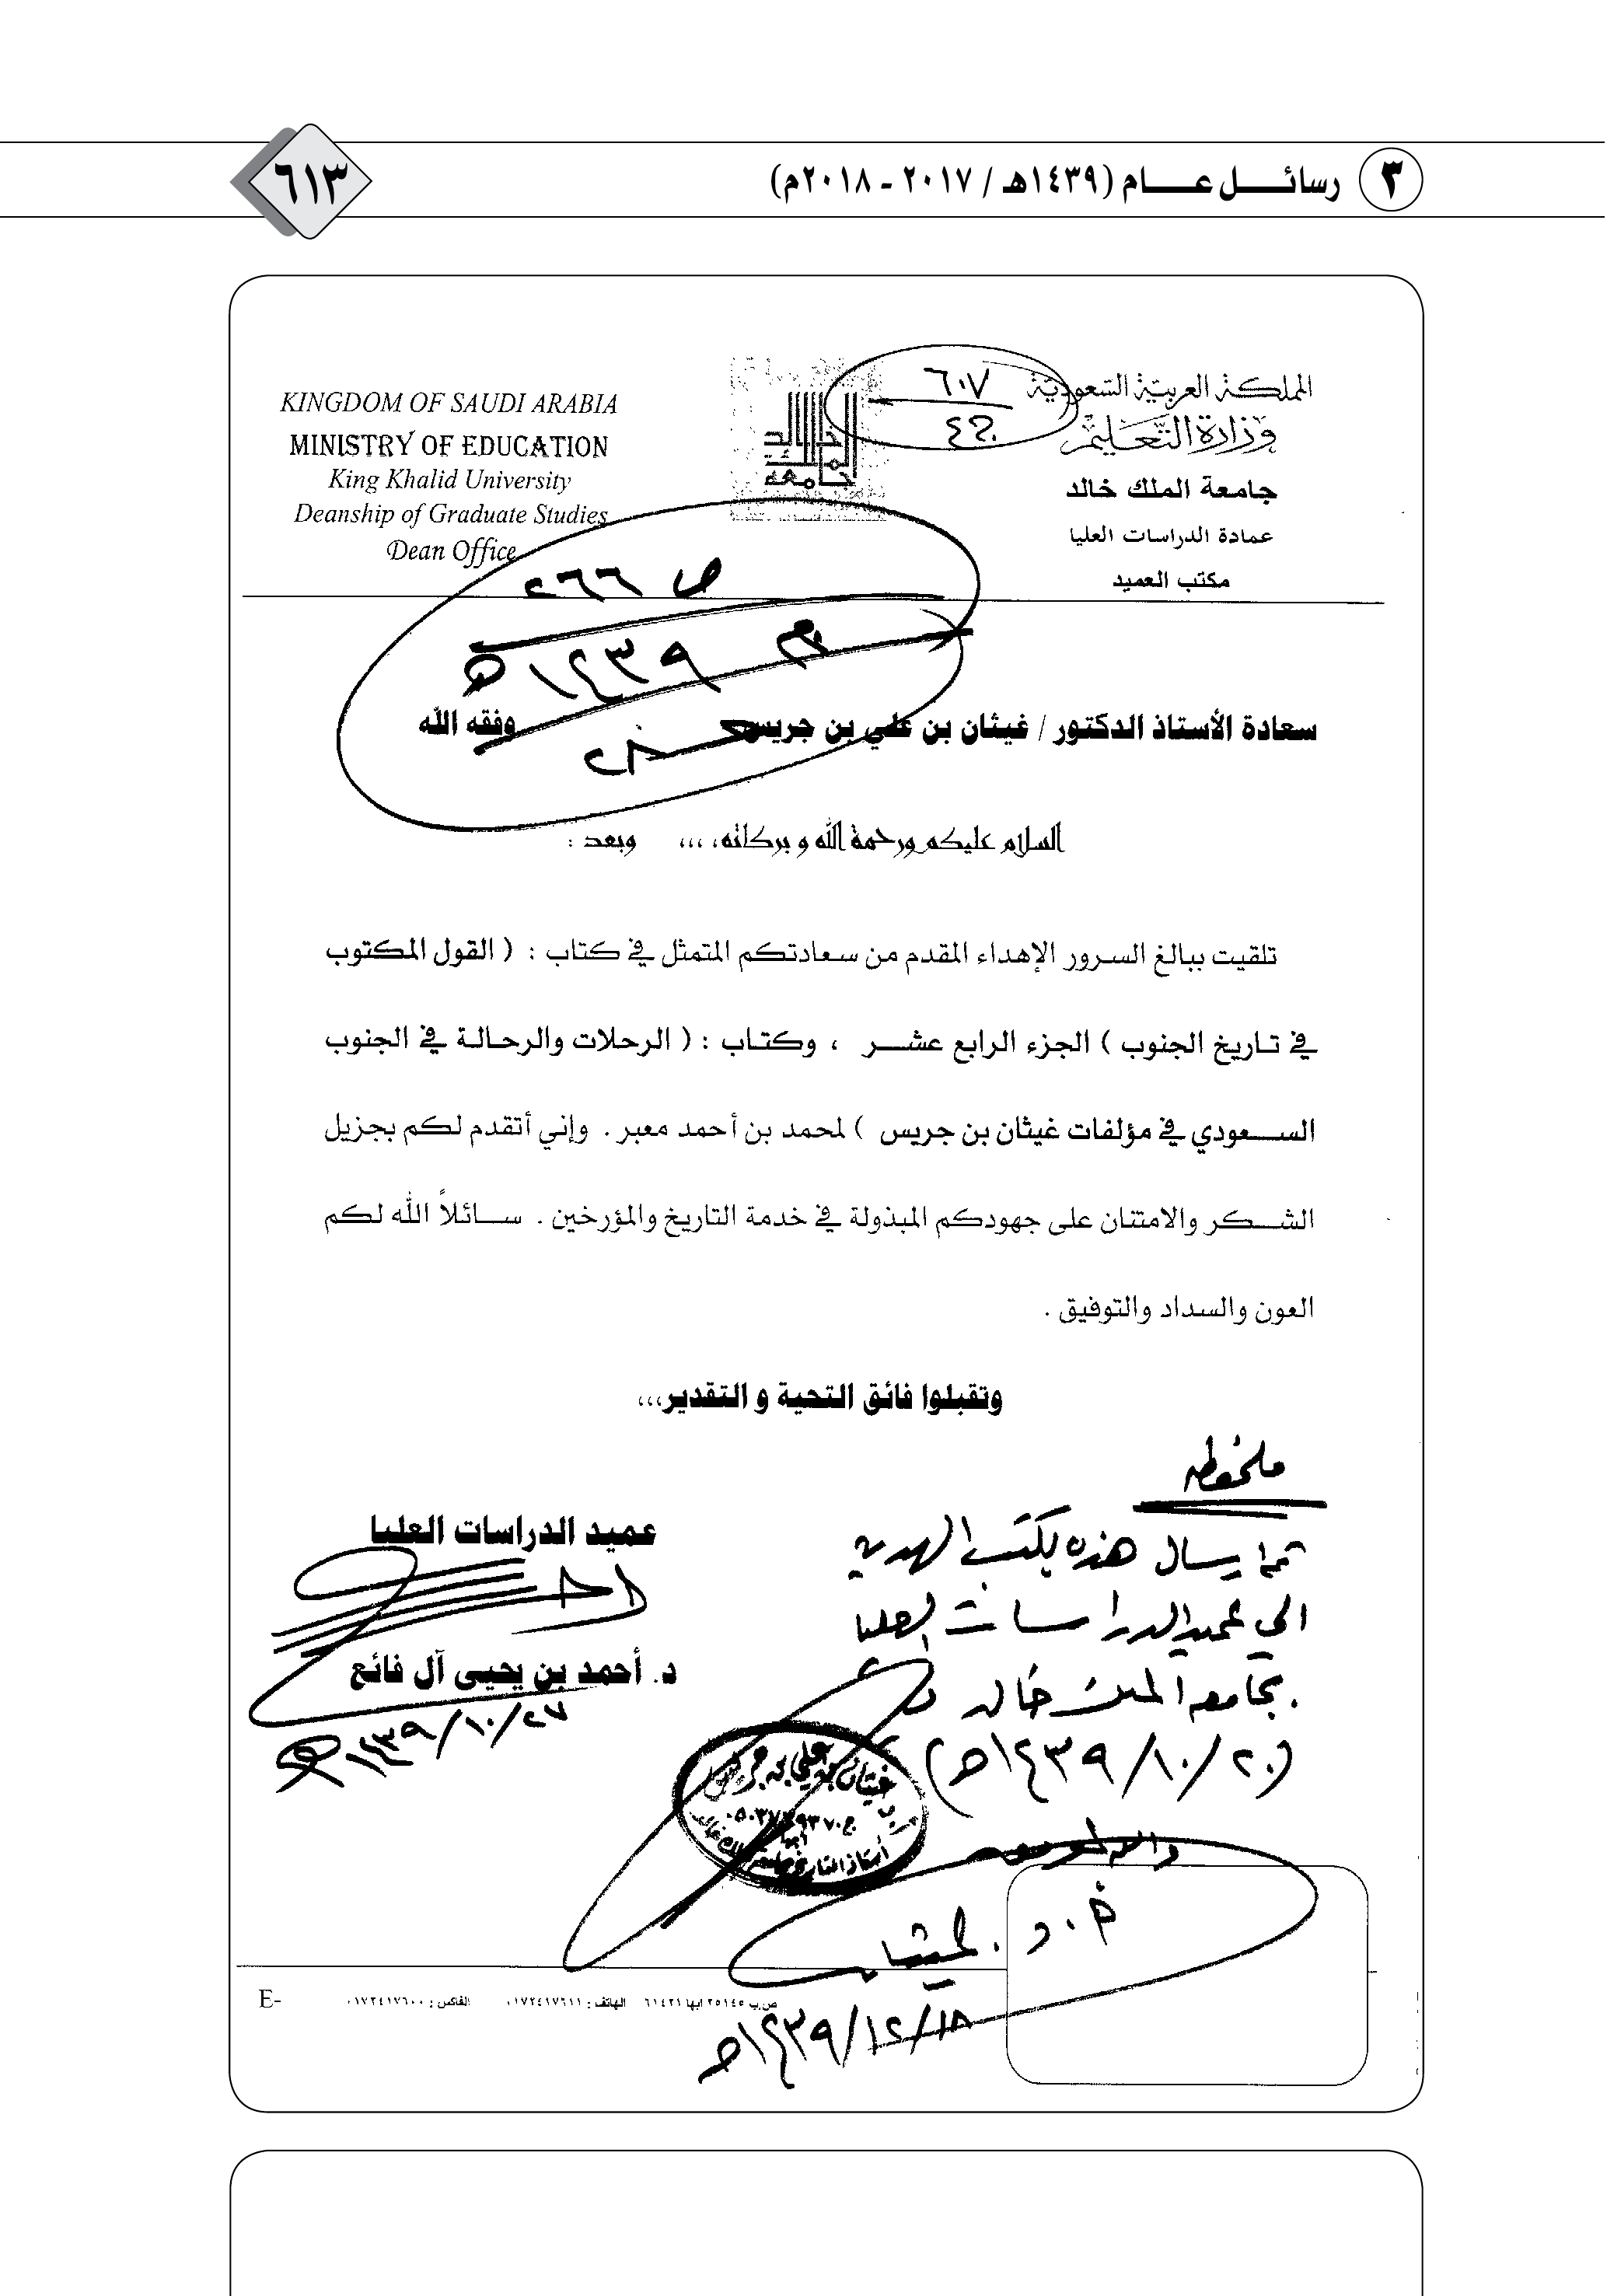 ٣ رسائل عام (١٤٣٩هـ / ٢٠١٧ - ٢٠١٨م)
٦١٣
المملكة العربية السعودية
وزارة التعليم
جامعة الملك خالد
عمادة الدراسات العليا
مكتب العميد
٦٠٧
KINGDOM OF SAUDI ARABIA
MINISTRY OF EDUCATION
King Khalid University
Deanship of Graduate Studies
Dean Office
ص ٢٦٦
١٤٣٩هـ
سعادة الأستاذ الدكتور / غيثان بن علي بن جريس وفقه الله
السلام عليكم ورحمة الله و بركاته، ،،، وبعد :
تلقيت ببالغ السرور الإهداء المقدم من سعادتكم المتمثل في كتاب : ( القول المكتوب
في تاريخ الجنوب ) الجزء الرابع عشر ، وكتاب : ( الرحلات والرحالة في الجنوب
السعودي في مؤلفات غيثان بن جريس ) لمحمد بن أحمد معبر . وإني أتقدم لكم بجزيل
الشكر والامتنان على جهودكم المبذولة في خدمة التاريخ والمؤرخين . سائلاً الله لكم
العون والسداد والتوفيق .
وتقبلوا فائق التحية و التقدير،،،
عميد الدراسات العليا
د. أحمد بن يحيى آل فائع
١٤٣٩/١٠/٢٧هـ
ملحوظه
تم إرسال هذه الكتب المهديه
الى عميد الدراسات العليا
بجامعه الملك خالد في
(١٤٣٩/١٠/٢٠هـ)
غيثان بن علي بن جريس
أبها
أستاذ التاريخ بجامعة الملك خالد
أ.د. غيثان
١٤٣٩/١٢/١٨هـ
ص.ب ٢٥١٤٥ ابها ٦١٤٢١ الهاتف : ٠١٧٢٤١٧٦١١ الفاكس : ٠١٧٢٤١٧٦٠٠ E-